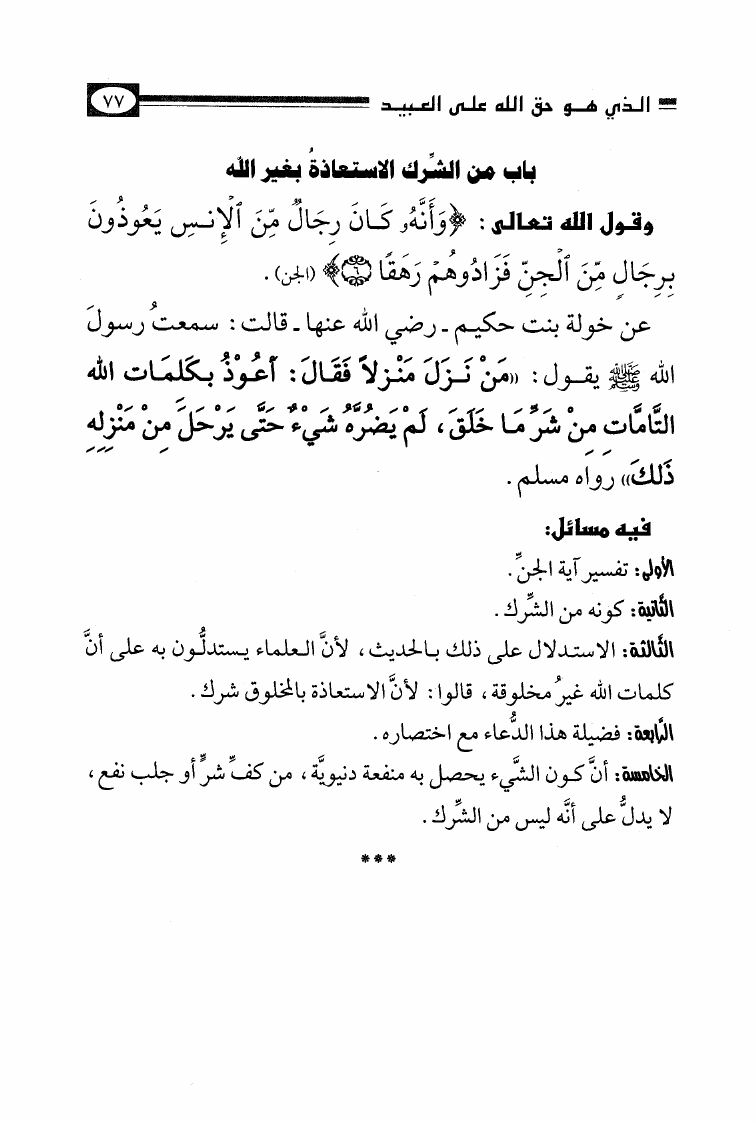 الذي هو حق الله على العبيد ٧٧
باب من الشِّرك الاستعاذةُ بغير الله
وقول الله تعالى: ﴿وَأَنَّهُۥ كَانَ رِجَالٌ مِّنَ ٱلْإِنسِ يَعُوذُونَ
بِرِجَالٍ مِّنَ ٱلْجِنِّ فَزَادُوهُمْ رَهَقًا ٦﴾ (الجن).
عن خولة بنت حكيم ـ رضي الله عنها ـ قالت: سمعتُ رسولَ
الله ﷺ يقول: «مَنْ نَزَلَ مَنْزِلاً فَقَالَ: أَعُوْذُ بِكَلِمَاتِ الله
التَّامَّاتِ مِنْ شَرِّ مَا خَلَقَ، لَمْ يَضُرَّهُ شَيْءٌ حَتَّى يَرْحَلَ مِنْ مَنْزِلِهِ
ذَلِكَ» رواه مسلم.
فيه مسائل:
الأولى: تفسير آية الجنِّ.
الثَّانية: كونه من الشِّرك.
الثَّالثة: الاستدلال على ذلك بالحديث، لأنَّ العلماء يستدلُّون به على أنَّ
كلمات الله غيرُ مخلوقة، قالوا: لأنَّ الاستعاذة بالمخلوق شرك.
الرَّابعة: فضيلة هذا الدُّعاء مع اختصاره.
الخامسة: أنَّ كون الشَّيء يحصل به منفعة دنيويَّة، من كفِّ شرٍّ أو جلب نفع،
لا يدلُّ على أنَّه ليس من الشِّرك.
***